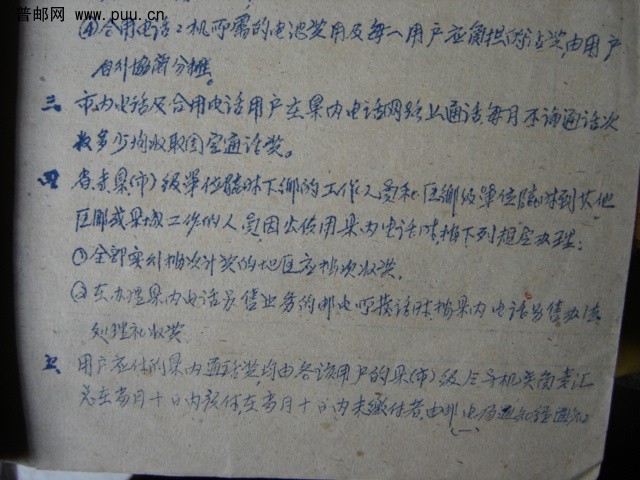 普邮网
www.puu.cn
④合用电话之机所需的电池费用及每一用户应负担的话费,由用户
自行协商分摊。
三 市内电话及合用电话用户在県内电话网路上通话,每月不论通话次
数多少均收取固定通话费。
四 省专県(市)级单位临时下乡的工作人员和区乡级单位临时到其他
区乡或県城工作的人员,因公使用県内电话时,按下列规定办理:
①全部实行按次计费的地区应按次收费。
②在办理県内电话另售业务的邮电所挂话时,按県内电话另售办法
处理和收费
五 用户应付的県内通话费,均由各该用户的県(市)级领导机关负责汇
总在当月十日内预付,在当月十日内未缴付者,由邮电局通知